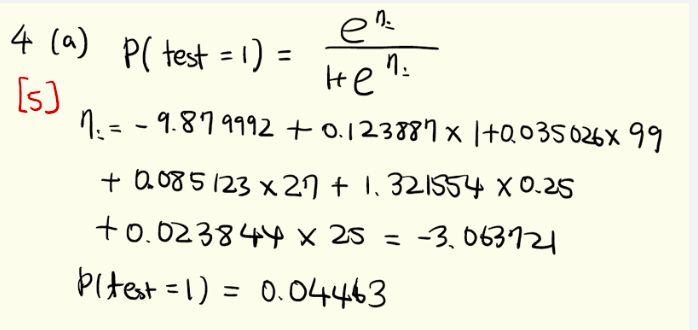 4 (a) P( test = 1) = e^ηi / 1+e^ηi
[5]
ηi = - 9.879992 + 0.123887 × 1 + 0.035026 × 99
+ 0.085123 × 27 + 1.321554 × 0.25
+ 0.023844 × 25 = -3.063721
P(test = 1) = 0.04463